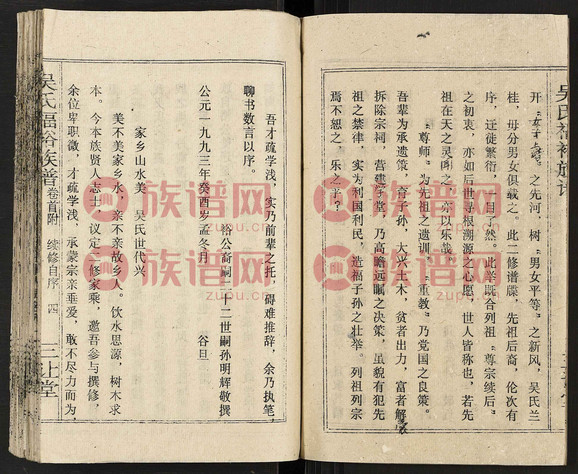 吴氏福裕族谱
开“女子 之先河，树“男女平等”之新风，吴氏兰
桂，毋分男女俱载之，此二修谱牒，先祖后裔，伦次有
序，迁徙繁衍，一目了然。此举既合列祖“尊宗续后”
之初衷，亦如后世寻根溯源之心愿，世人皆称也，若先
祖在天之灵闻之，亦以乐哉。
“尊师”为先祖之遗训，“重教”乃党国之良策。
吾辈为承遗策，育子孙，大兴土木，贫者出力，富者解
拆除宗祠，营建学堂，乃高瞻远瞩之决策，虽貌有犯先
祖之禁律，实为利国利民，造福子孙之壮举。列祖列宗
焉不恕之。乐之乎？
吾才疏学浅，实乃前辈之托，碍难推辞，余乃执笔
聊书数言以序。
裕公裔嗣二十二世嗣孙明辉敬撰
公元一九九三年癸酉岁孟冬月 谷旦
家乡山水美 吴氏世代兴
美不美家乡水，亲不亲故乡人。饮水思源，树木求
本。今本族贤人志士，议定二修家乘，邀吾参与撰修，
余位卑职微，才疏学浅，承蒙宗亲垂爱，敢不尽力而为，
吴氏福裕族谱 卷首附 续修自序 四 三让堂
族谱网
zupu.cn